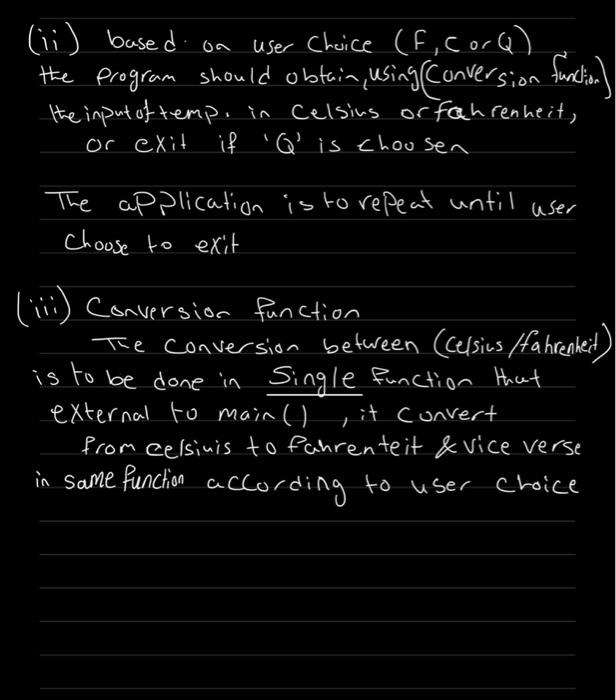 (ii) based on user choice (F, C or Q)
the program should obtain, using (Conversion function)
the input of temp. in Celsius or fahrenheit,
or exit if 'Q' is choosen
The application is to repeat until user
choose to exit
(iii) Conversion function
The conversion between (celsius/fahrenheit)
is to be done in Single function that
external to main() , it convert
from celsiuis to fahrenteit & vice verse
in same function according to user choice